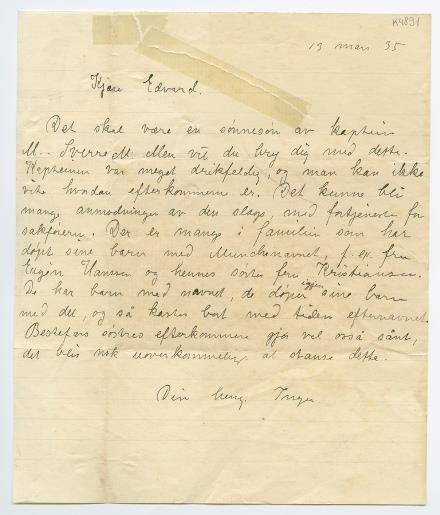 K4891
13 mars 35
Kjære Edvard.
Det skal være en sønnesøn av kaptein
M. Sverre M. eller vil du bry dig med dette.
Kapteinen var meget drikfeldig og man kan ikke
vite hvordan efterkommerne er. Det kunne bli
mange anmodninger av den slags, med fortjeneste for
sakførere. Der er mange i familien som har
døpt sine barn med Munchnavnet, f. ex. fru
Eugen Hanssen og hennes søster fru Kristiansen.
De har barn med navnet, de døper igjen sine barn
med det, og så kastes bort med tiden efternavnet.
Bestefars søstres efterkommere gjør vel også sånt,
det blir nok uoverkommelig at stanse dette.
Din heng. Inger